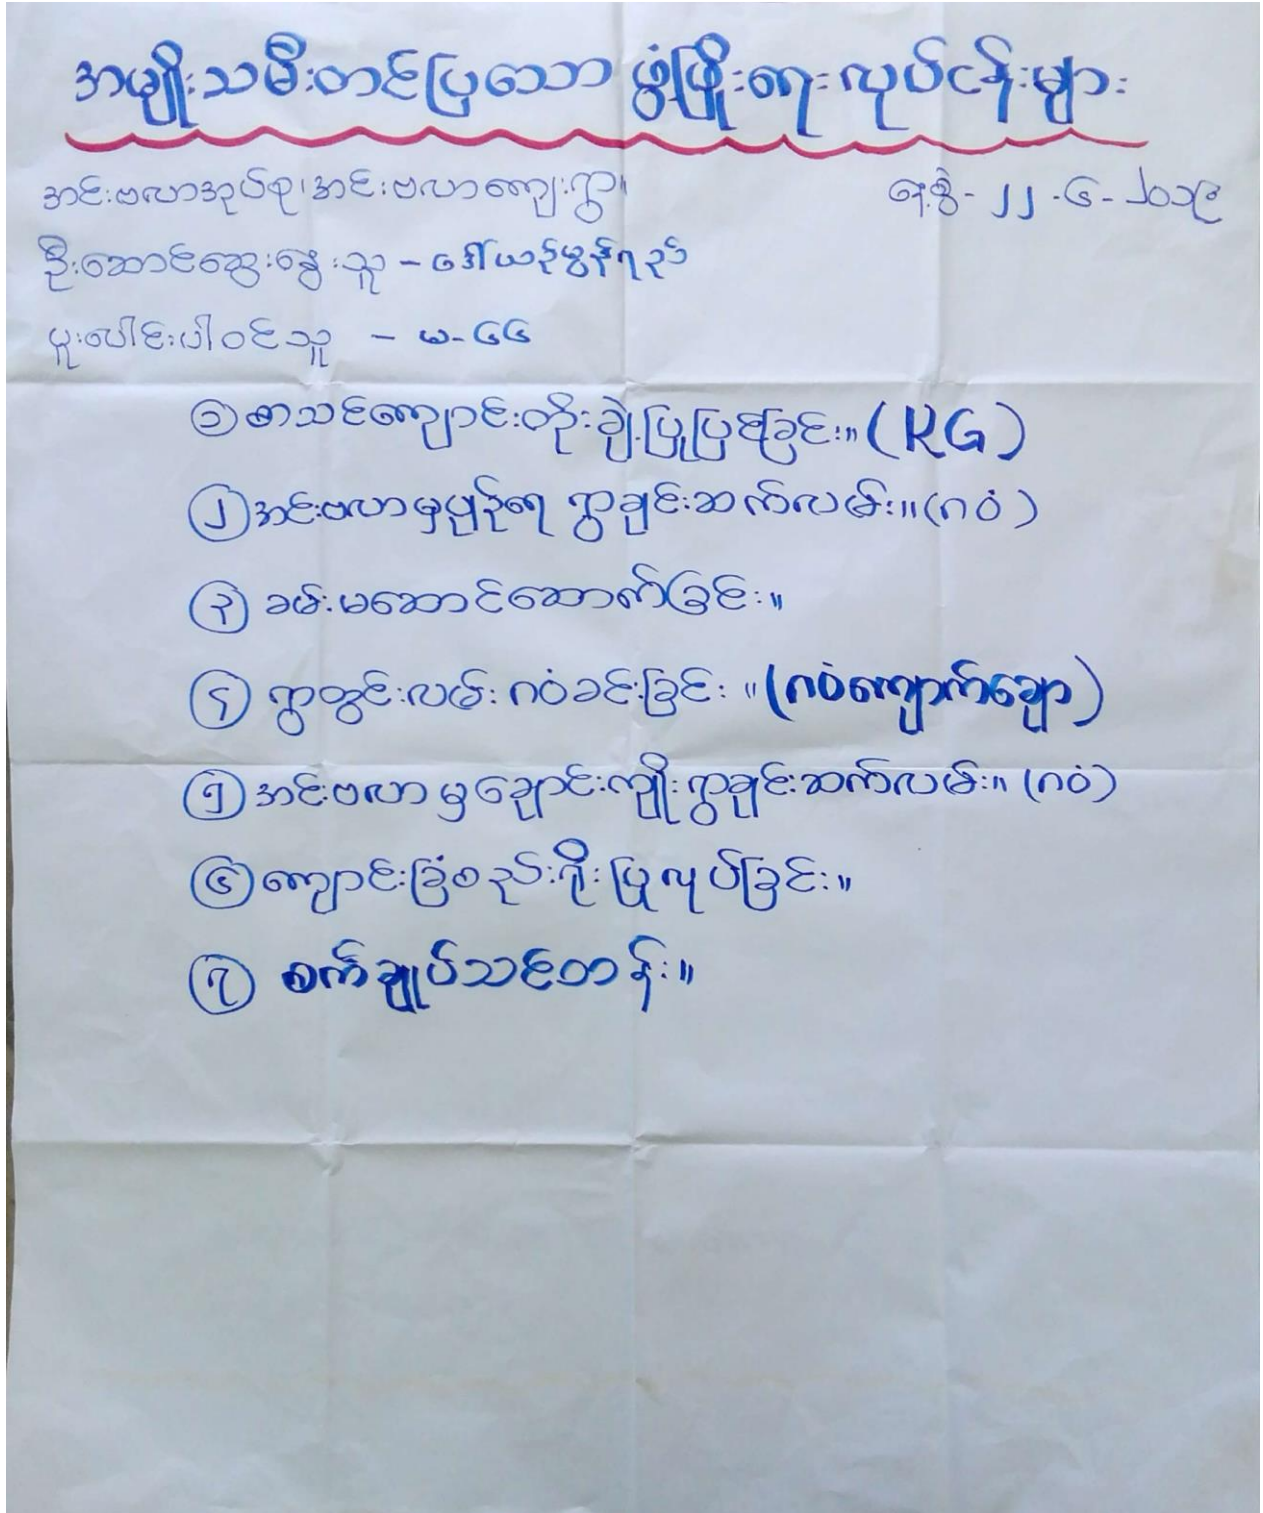 အမျိုးသမီးတင်ပြသော ဖွံ့ဖြိုးရေးလုပ်ငန်းများ
အင်းဗလာအုပ်စု၊အင်းဗလာကျေးရွာ။ နေ့စွဲ - ၂၂ - ၆ - ၂၀၁၉
ဦးဆောင်ဆွေးနွေးသူ - ဒေါ်ယဉ်မွန်ရည်
ပူးပေါင်းပါဝင်သူ - မ - ၆၆
၁ စာသင်ကျောင်းတိုးချဲ့ပြုပြင်ခြင်း။ (KG)
၂ အင်းဗလာမှပျဉ်ရေ ရွာချင်းဆက်လမ်း။ (ဂဝံ)
၃ ခမ်းမဆောင်ဆောက်ခြင်း။
၄ ရွာတွင်းလမ်းဂဝံခင်းခြင်း။ (ဂဝံကျောက်ချော)
၅ အင်းဗလာမှချောင်းကျိုးရွာချင်းဆက်လမ်း။ (ဂဝံ)
၆ ကျောင်းခြံစည်းရိုးပြုလုပ်ခြင်း။
၇ စက်ချုပ်သင်တန်း။